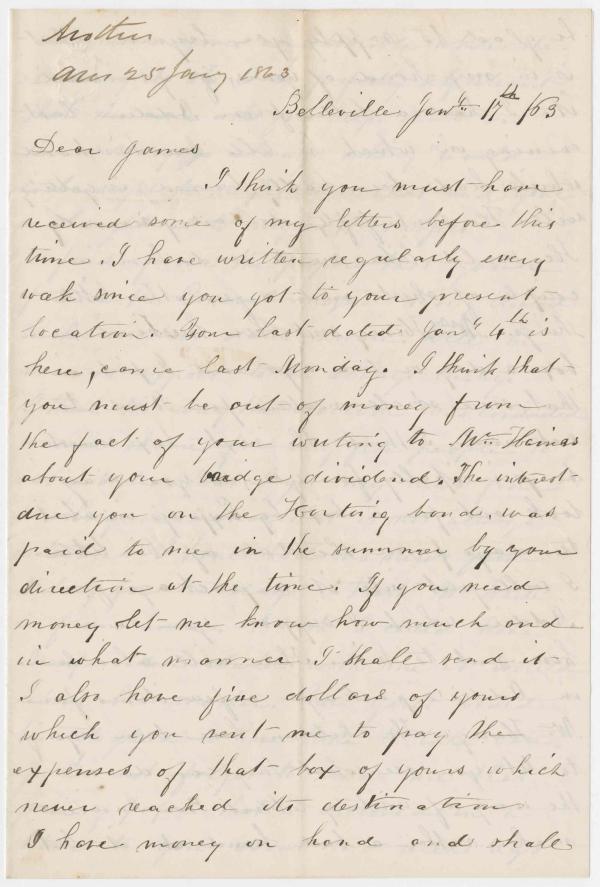 Mother
Ans 25 Jany 1863
Belleville Jany 17th /63
Dear James
I think you must have
received some of my letters before this
time. I have written regularly every
week since you got to your present
location. Your last dated Jany 4th is
here, came last Monday. I think that
you must be out of money from
the fact of your writing to Mr
about your bridge dividend. The interest
due you on the bond, was
paid to me in the summer by your
direction at the time. If you need
money let me know how much and
in what manner I shall send it
I also have five dollars of yours
which you sent me to pay the
expenses of that box of yours which
never reached its destination
I have money on hand and shall